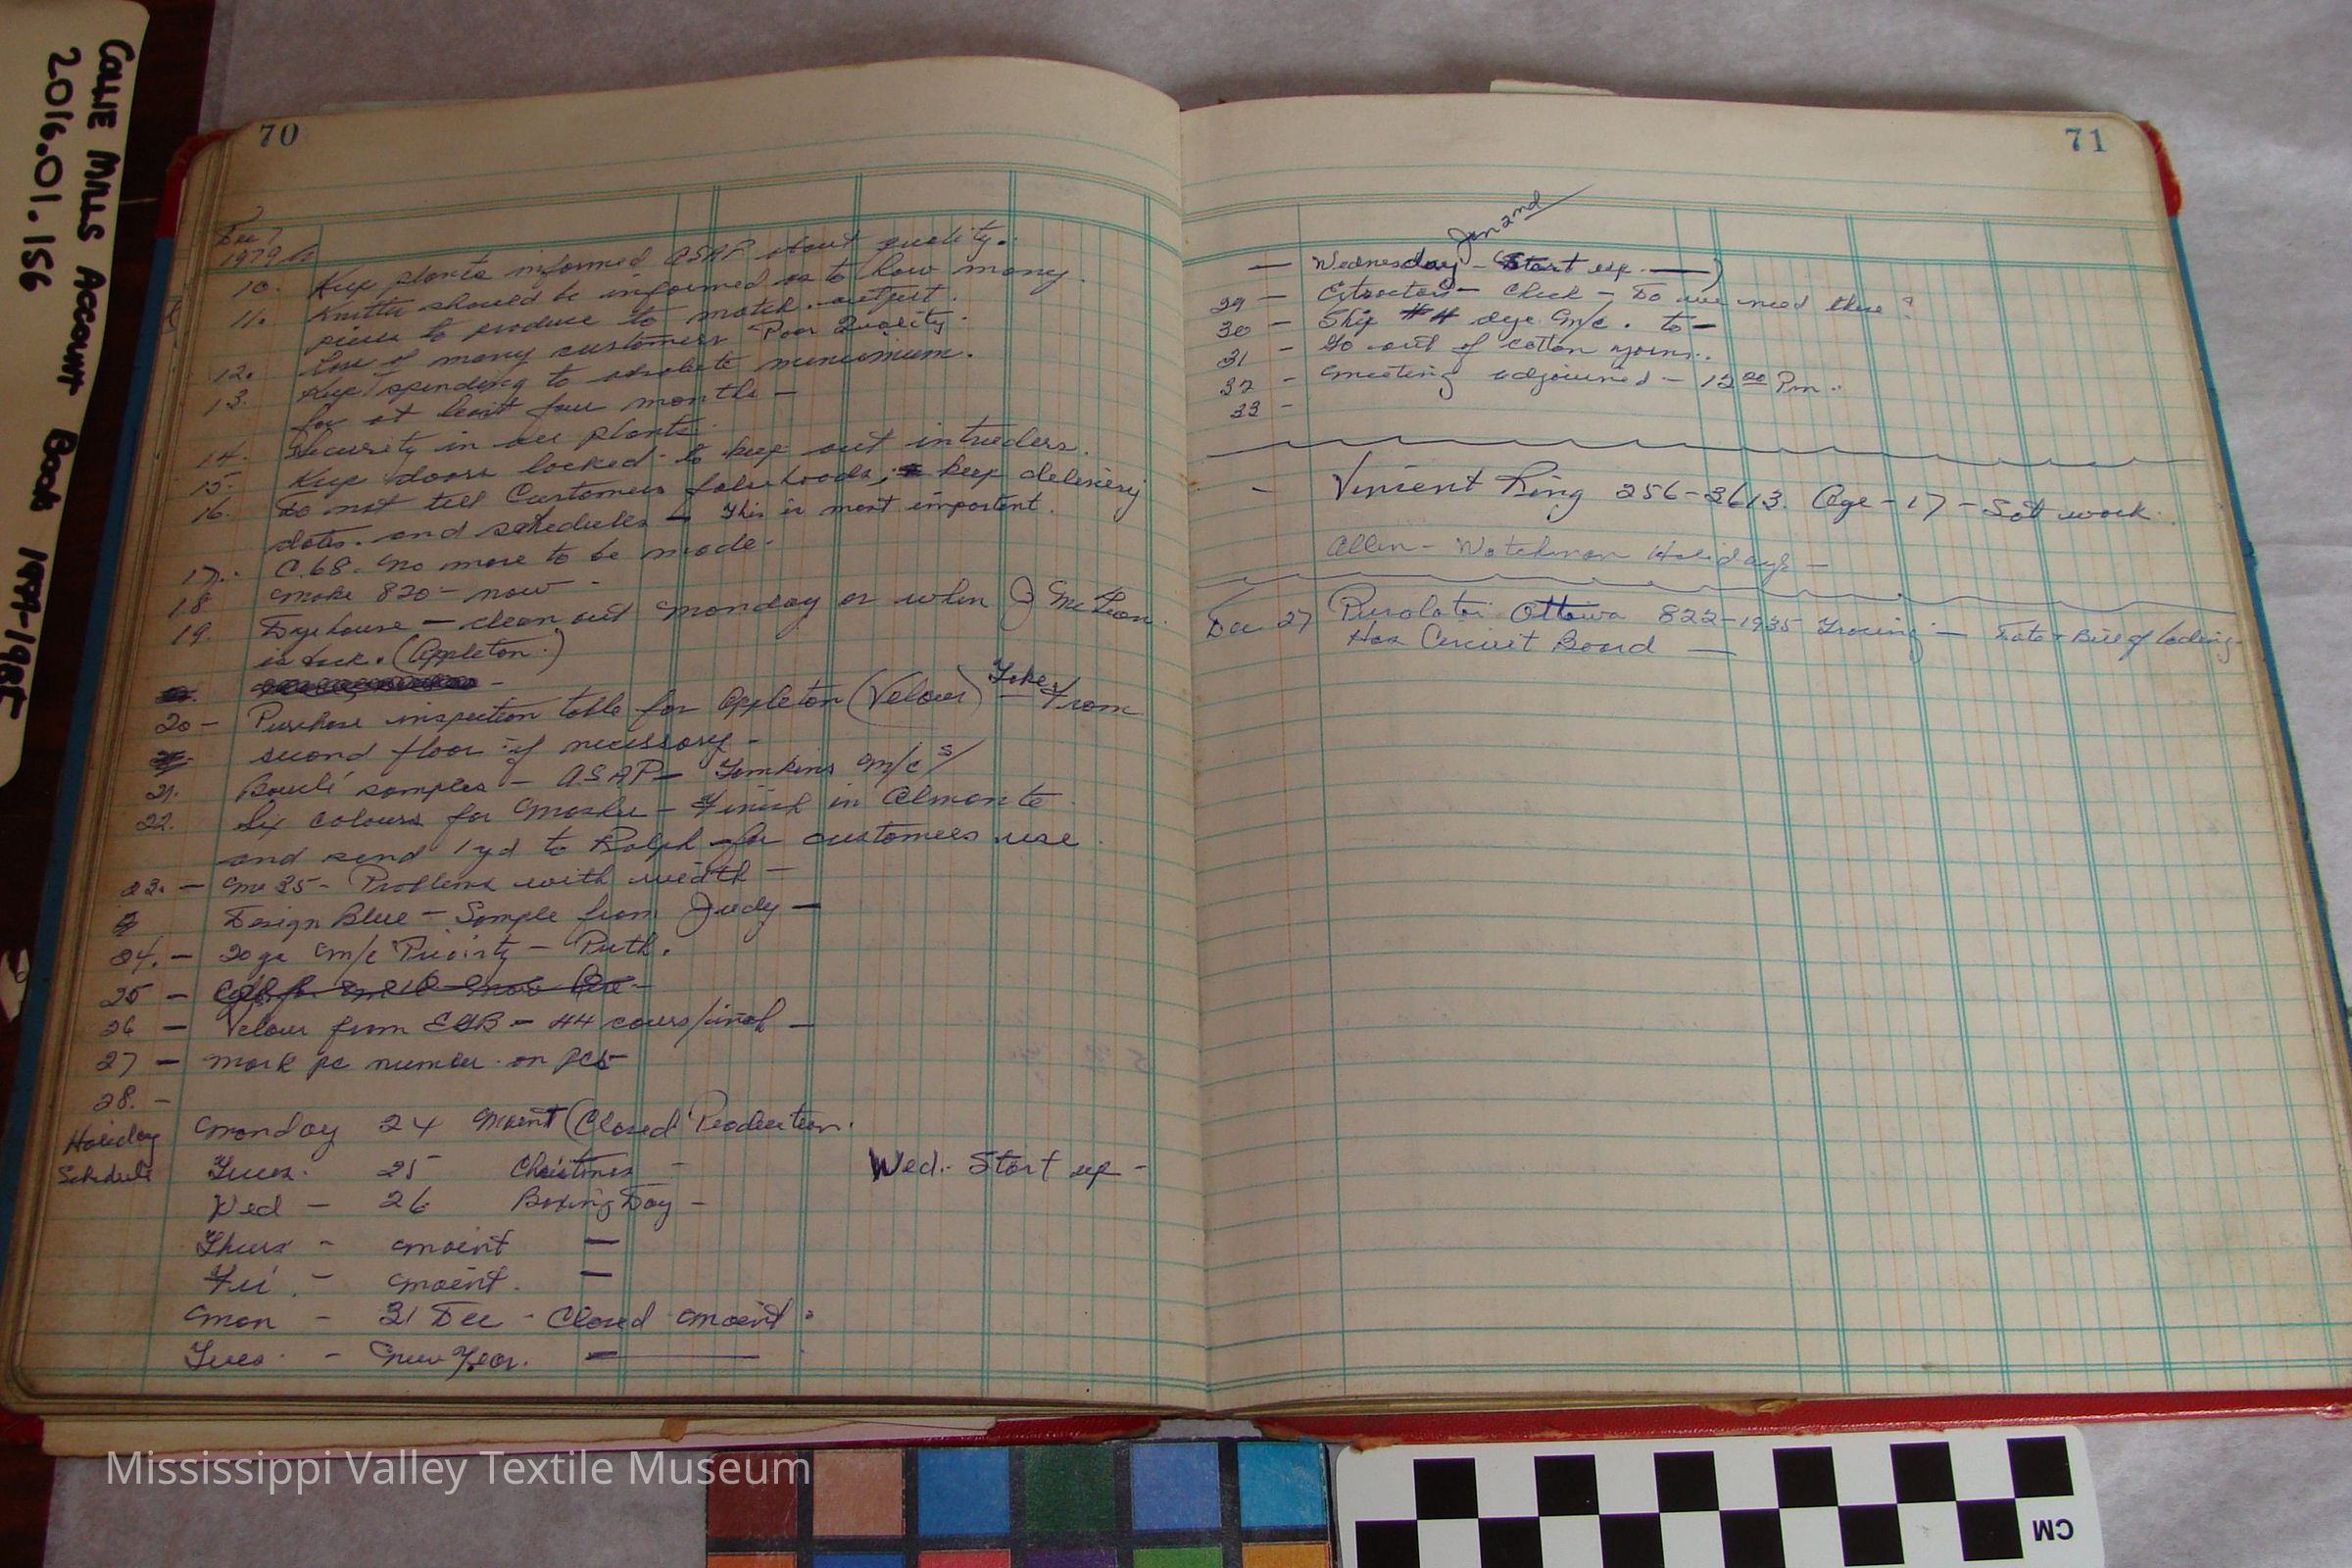 Collie Mills Account Book 1979-1985
2016.01.156
70
Dec 7
1979
10. Keep plants informed ASAP about quality.
11. Knitter should be informed as to how many
pieces to produce to match output.
12. Lose of many customers Poor Quality.
13. Keep spending to absolute minimum.
for at least four months -
14. Security in all plants.
15. Keep doors locked - to keep out intruders.
16. Do not tell Customers falsehoods, keep delivery
dates. and schedules - This is most important.
17. C.68 - no more to be made.
18 Make 820 - now -
19. Dyehouse - clean out Monday or when J McLean
is back. (Appleton.)
20 - Purchase inspection table for Appleton (Velour) Take From
second floor if necessary -
21. samples - ASAP - Tomkins M/c s/
22. Six Colours for - Finish in Almonte
and send 1 yd to Ralph for customers use
23. - 35 - Problems with width -
Design Blue - Sample from Judy -
24. - 20 ga M/c Priority - Perth.
25 -
26 - Velour from - 44 cours/inch -
27 - mark pc number on pcs
28. -
Holiday Monday 24 Maint (Closed Production.
Schedule Tues. 25 Christmas - Wed. Start up -
Wed - 26 Boxing Day -
Thurs - Maint -
Fri. - Maint. -
Mon - 31 Dec - Closed Maint.
Tues. - New Year. -
71
Jan 2nd
- Wednesday - Start up. - )
29 - Extractors - Check - Do we need these?
30 - Ship #4 dye M/c. to -
31 - Go out of cotton yarns.
32 - Meeting adjourned - 12 20 Pm.
33 -
- Vincent King 256-3613. Age - 17 - Sat work.
Allen - Watchman Holidays -
Dec 27 Purolator Ottawa 822-1935 Tracing - Date & Bill of lading -
Has Circuit Board -
Mississippi Valley Textile Museum
CM